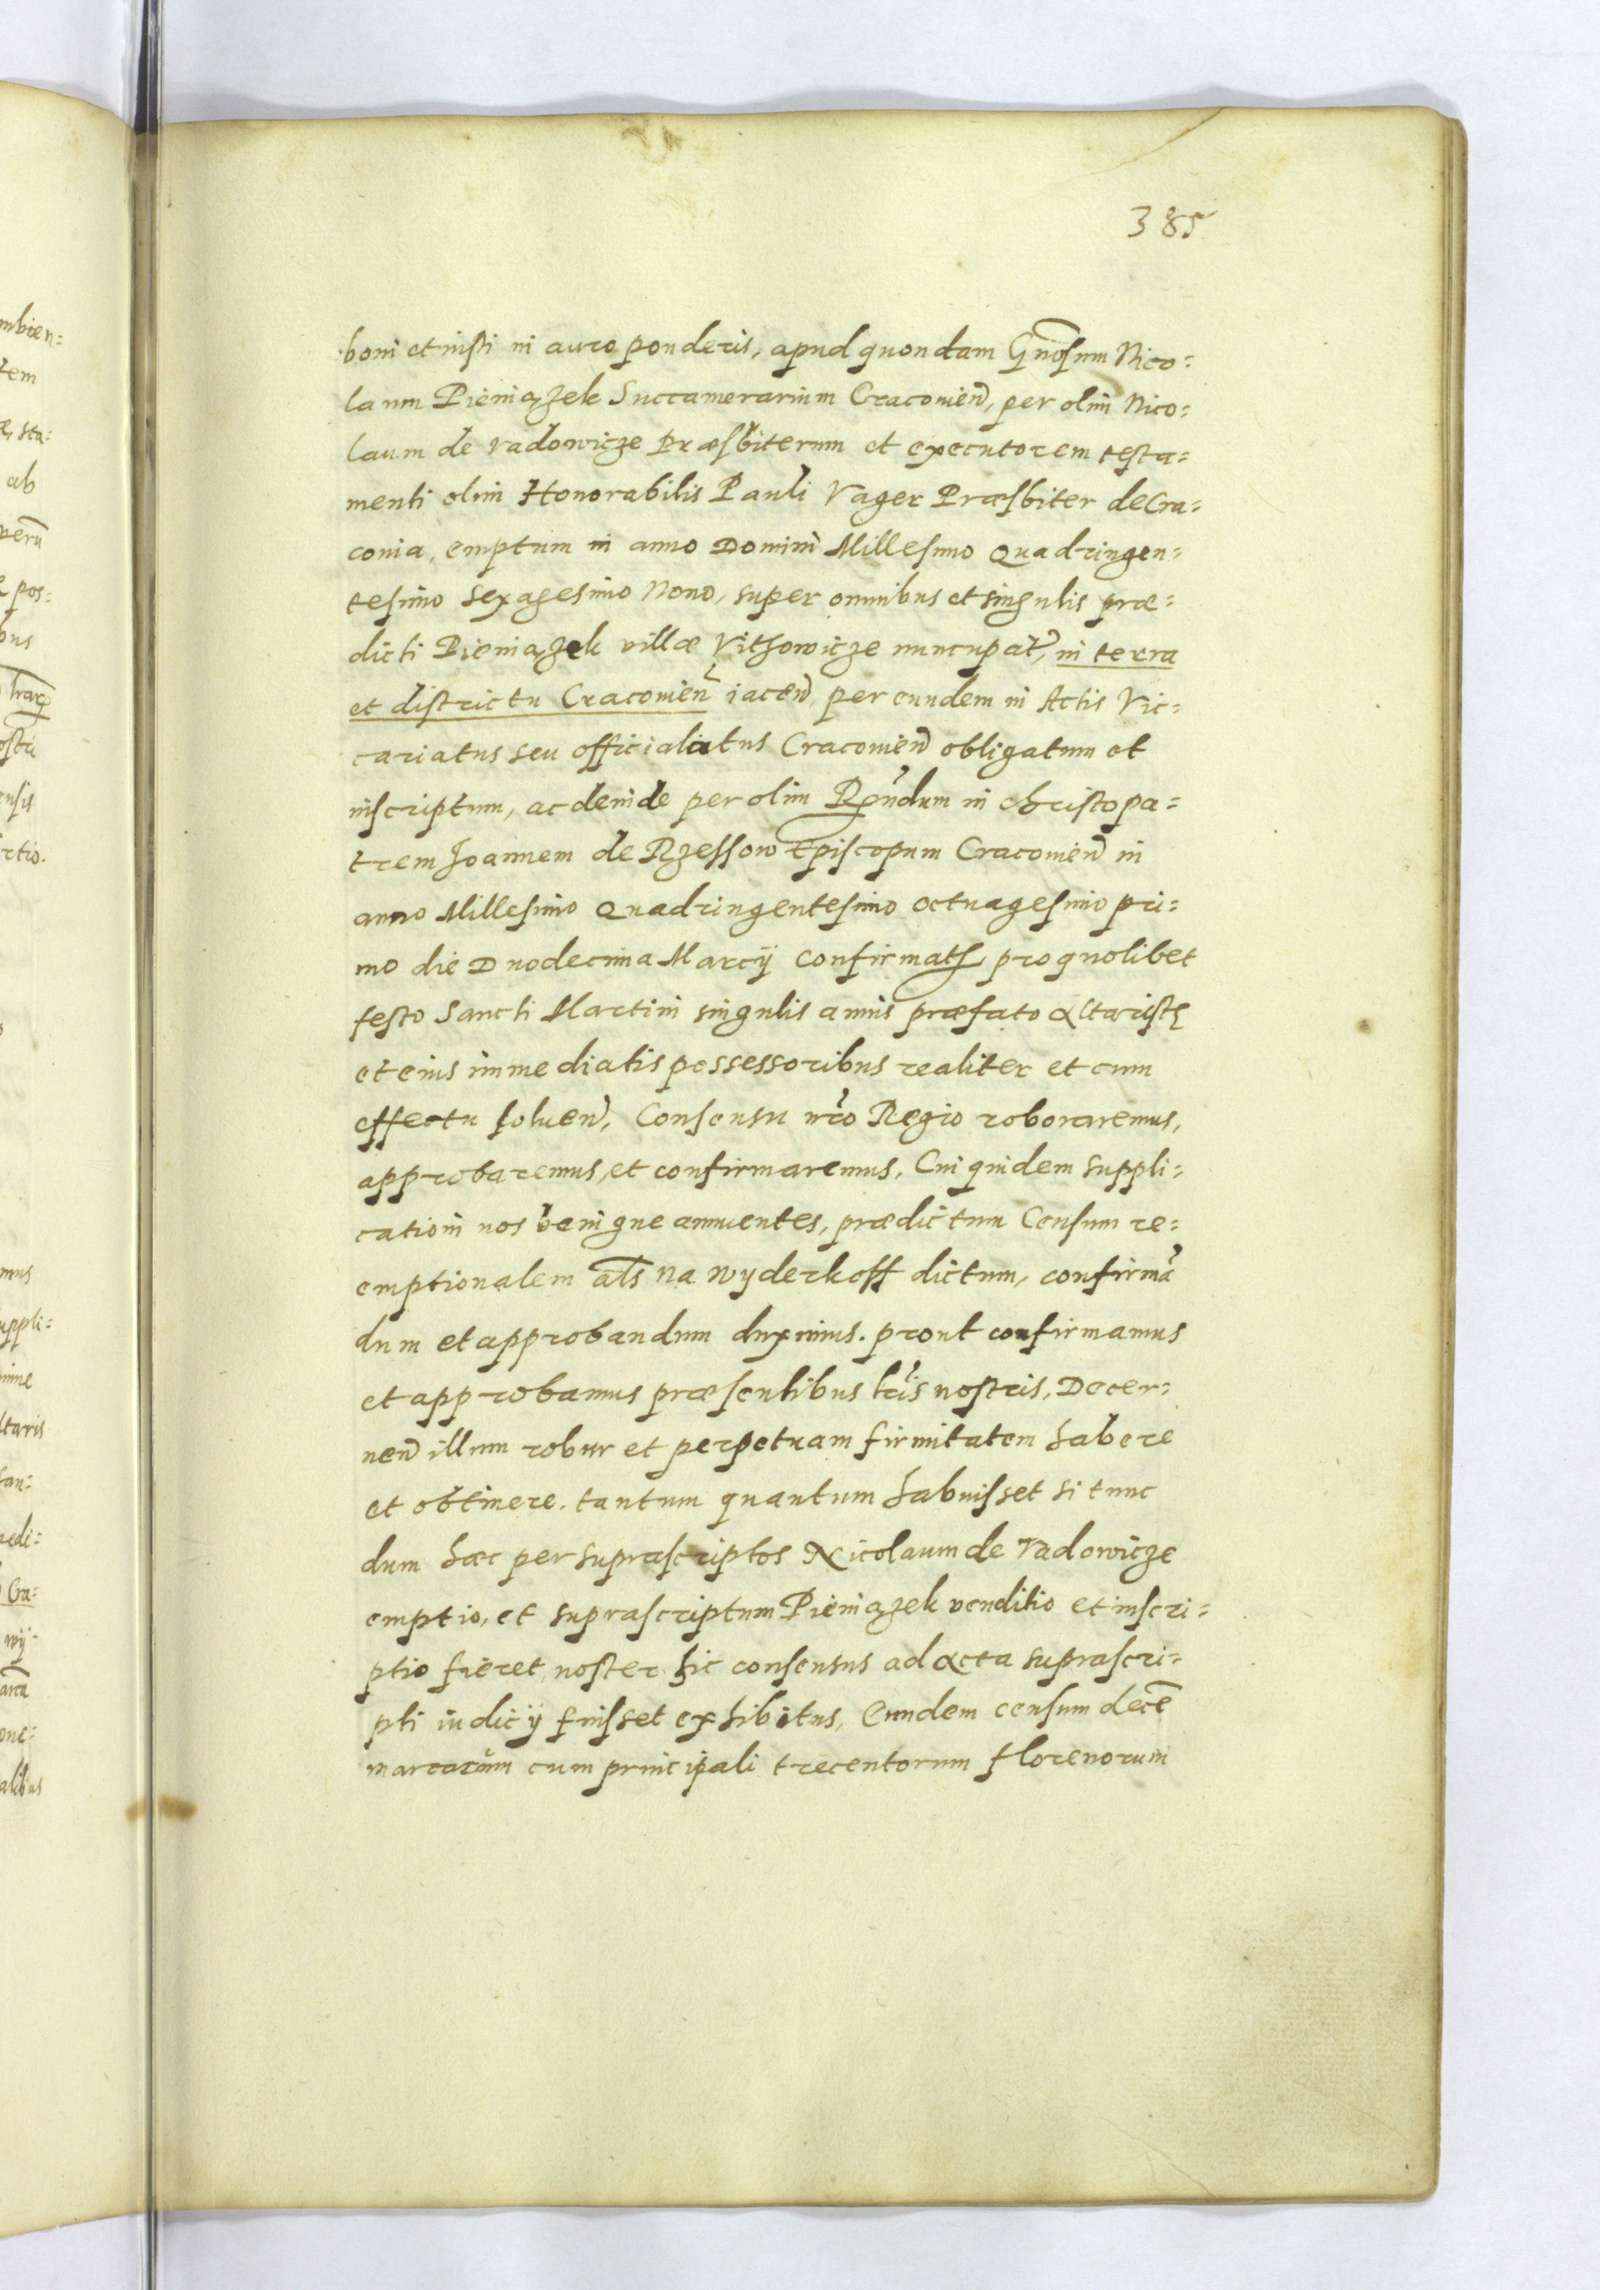 385
boni et iusti in auro ponderis, apud quondam Gnosum Nico=
laum Pieniążek Succamerarium Cracovien, per olim Nico=
laum de Vadowicze Præsbiterum et executorem testa=
menti olim Honorabilis Pauli Vager Præsbiter de Cra=
covia, emptum in anno Domini Millesimo Quadringen=
tesimo Sexagesimo Nono, super omnibus et singulis præ=
dicti Pieniążek villæ Vithowicze nuncupat, in terra
et districtu Cracovien iacen per eundem in Actis Vic=
cariatus seu officialiatus Cracovien obligatum et
inscriptum, ac deinde per olim Rndum in Christo pa=
trem Joannem de Rzessow Episcopum Cracovien in
anno Millesimo Quadringentesimo octuagesimo pri=
mo die Duodecima Marcij confirmat, pro quolibet
festo Sancti Martini singulis annis præfato Altaristę
et eius immediatis possessoribus realiter et cum
effectu soluen, Consensu nro Regio roboraremus,
approbaremus, et confirmaremus, Cui quidem suppli=
cationi nos benigne annuentes, prædictum Censum re=
emptionalem als na wyderkoff dictum, confirma
dum et approbandum duximus. prout confirmamus
et approbamus præsentibus lris nostris, Decer=
nen illum robur et perpetuam firmitatem habere
et obtinere, tantum quantum habuisset si tunc
dum hæc per suprascriptos Nicolaum de Vadowicze
emptio, et suprascriptum Pieniążek venditio et inscri=
ptio fieret, noster hic consensus ad Acta suprascri=
pti iudicij fuisset exhibitus, Eundem censum decē
marcarum cum principali trecentorum florenorum